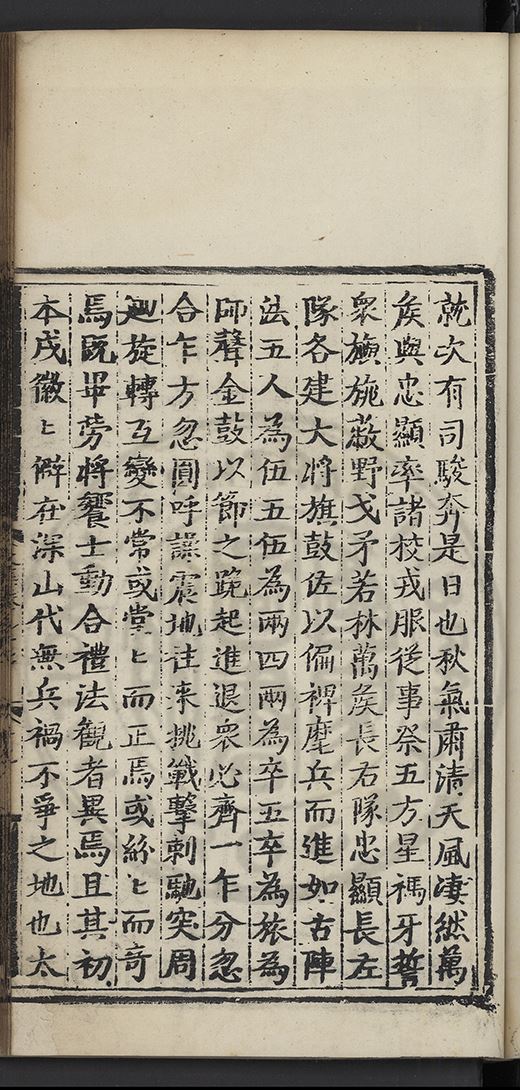 就次有司駿奔是日也秋氣肅清天風凄緊萬
矦與忠顯率諸校戎服從事祭五方星禡牙誓
衆旗旄蔽野戈矛若林萬矦長右隊忠顯長左
隊各建大將旗鼓佐以偏裨麾兵而進如古陣
法五人為伍五伍為兩四兩為卒五卒為旅為
師聲金鼓以節之跪起進退衆必齊一乍分忽
合乍方忽圓呼譟震地往來挑戰擊刺馳突周
迴旋轉互變不常或堂〻而正焉或紛〻而竒
焉既畢勞將饗士動合禮法觀者異焉且其初
本戍徽〻僻在深山代無兵禍不爭之地也太